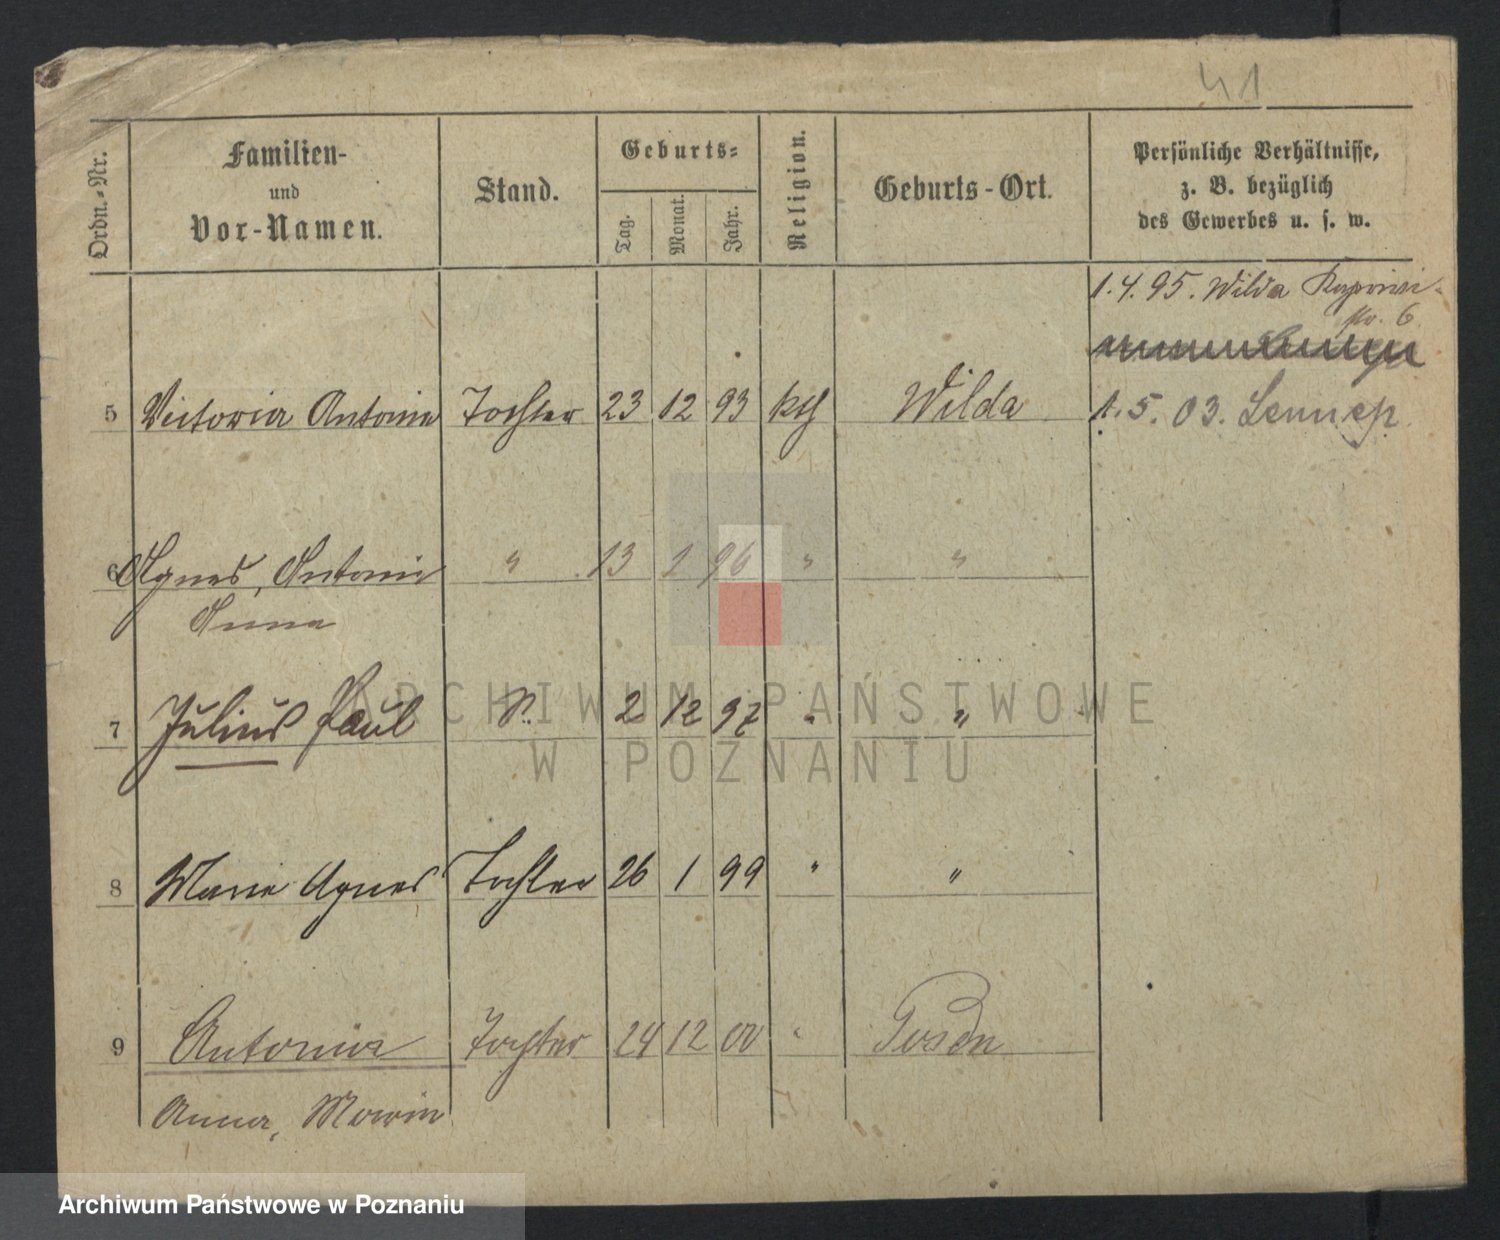 41
Ordn.-Nr.
Familien-
und
Vor-Namen.
Stand.
Geburts-
Tag.
Monat.
Jahr.
Religion.
Geburts-Ort.
Persönliche Verhältnisse,
z. B. bezüglich
des Gewerbes u. s. w.
1. 4. 95. Wilda
str. 6.
5 Victoria Antonie Tochter 23 12 93 kth Wilda 1. 5. 03. Lennep
6 Agnes, Antonie " 13 1 96 " "
Anna
7 Julius Paul S. 2 12 97 " "
8 Marie Agnes Tochter 26 1 99 " "
9 Antonia Tochter 24 12 00 " Posen
Anna, Marie
ARCHIWUM PAŃSTWOWE
W POZNANIU
Archiwum Państwowe w Poznaniu